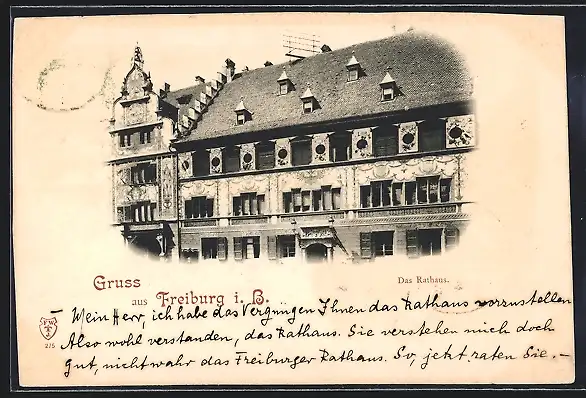 Das Rathaus.
Gruss
aus Freiburg i. B.
F.W.
2/5
— Mein Herr, ich habe das Vergnügen Ihnen das Rathaus vorzustellen
Also wohl verstanden, das Rathaus. Sie verstehen mich doch
gut, nicht wahr das Freiburger Rathaus. So, jetzt raten Sie. —